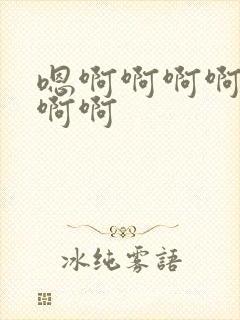 嗯啊啊啊啊
啊啊
冰纯雾語